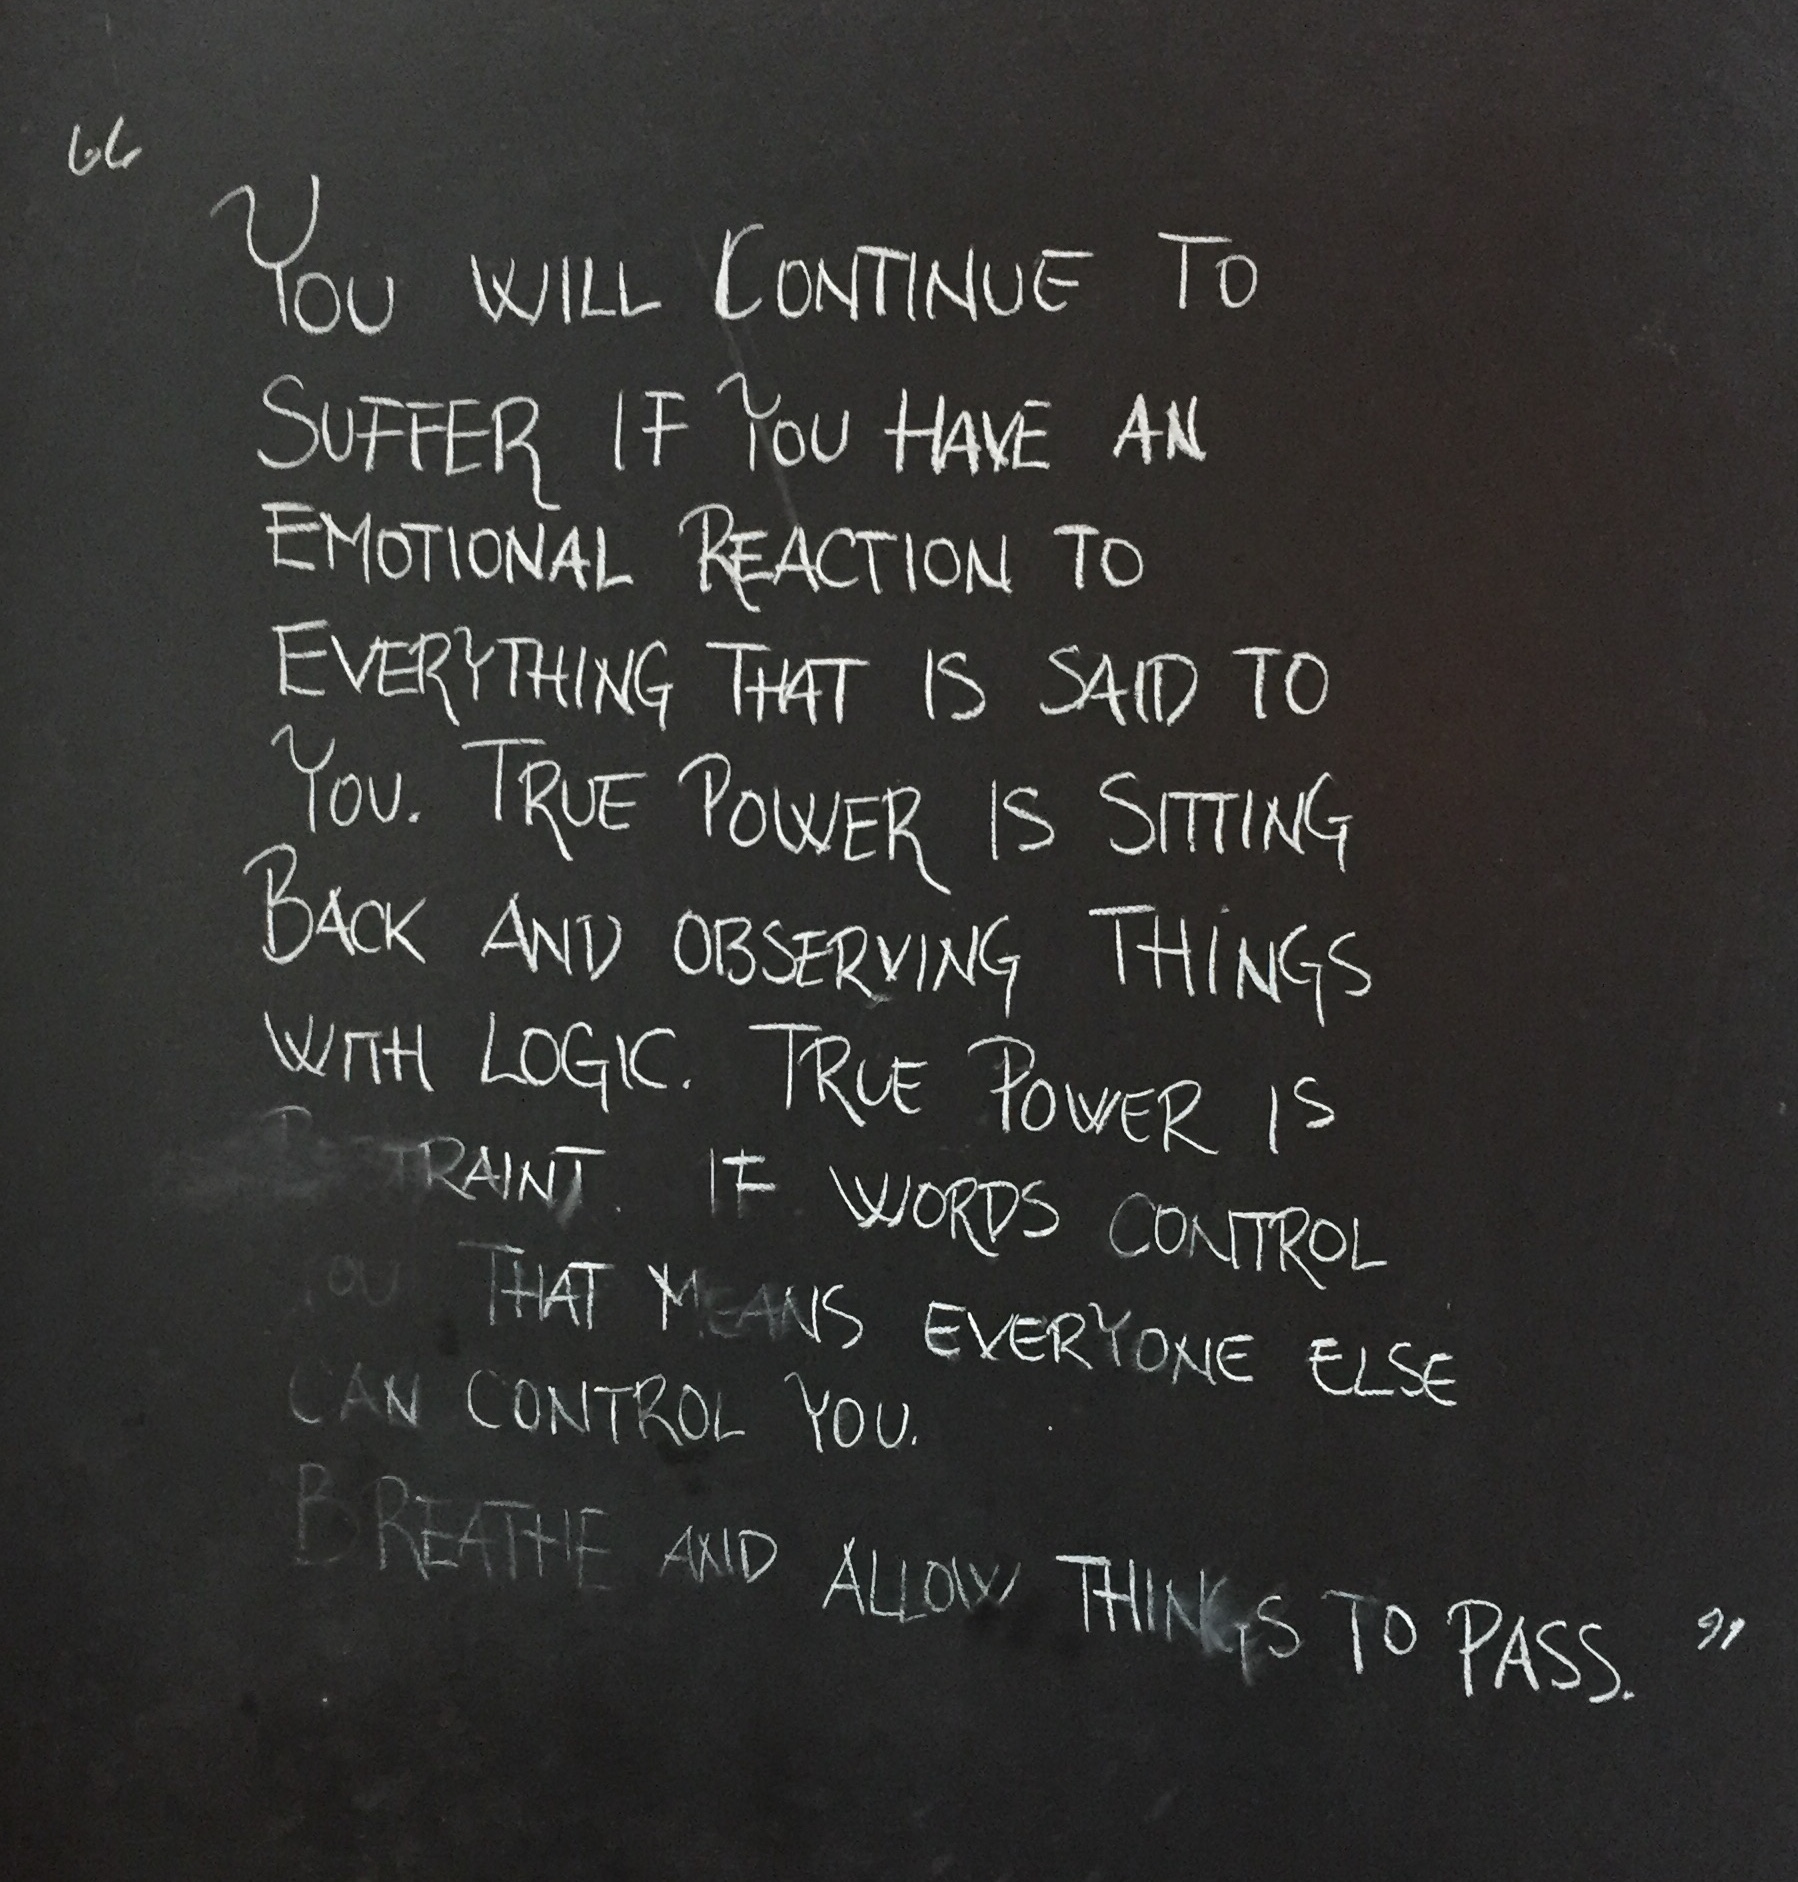 “
YOU WILL CONTINUE TO
SUFFER IF YOU HAVE AN
EMOTIONAL REACTION TO
EVERYTHING THAT IS SAID TO
YOU. TRUE POWER IS SITTING
BACK AND OBSERVING THINGS
WITH LOGIC. TRUE POWER IS
RESTRAINT. IF WORDS CONTROL
YOU THAT MEANS EVERYONE ELSE
CAN CONTROL YOU.
BREATHE AND ALLOW THINGS TO PASS. ”